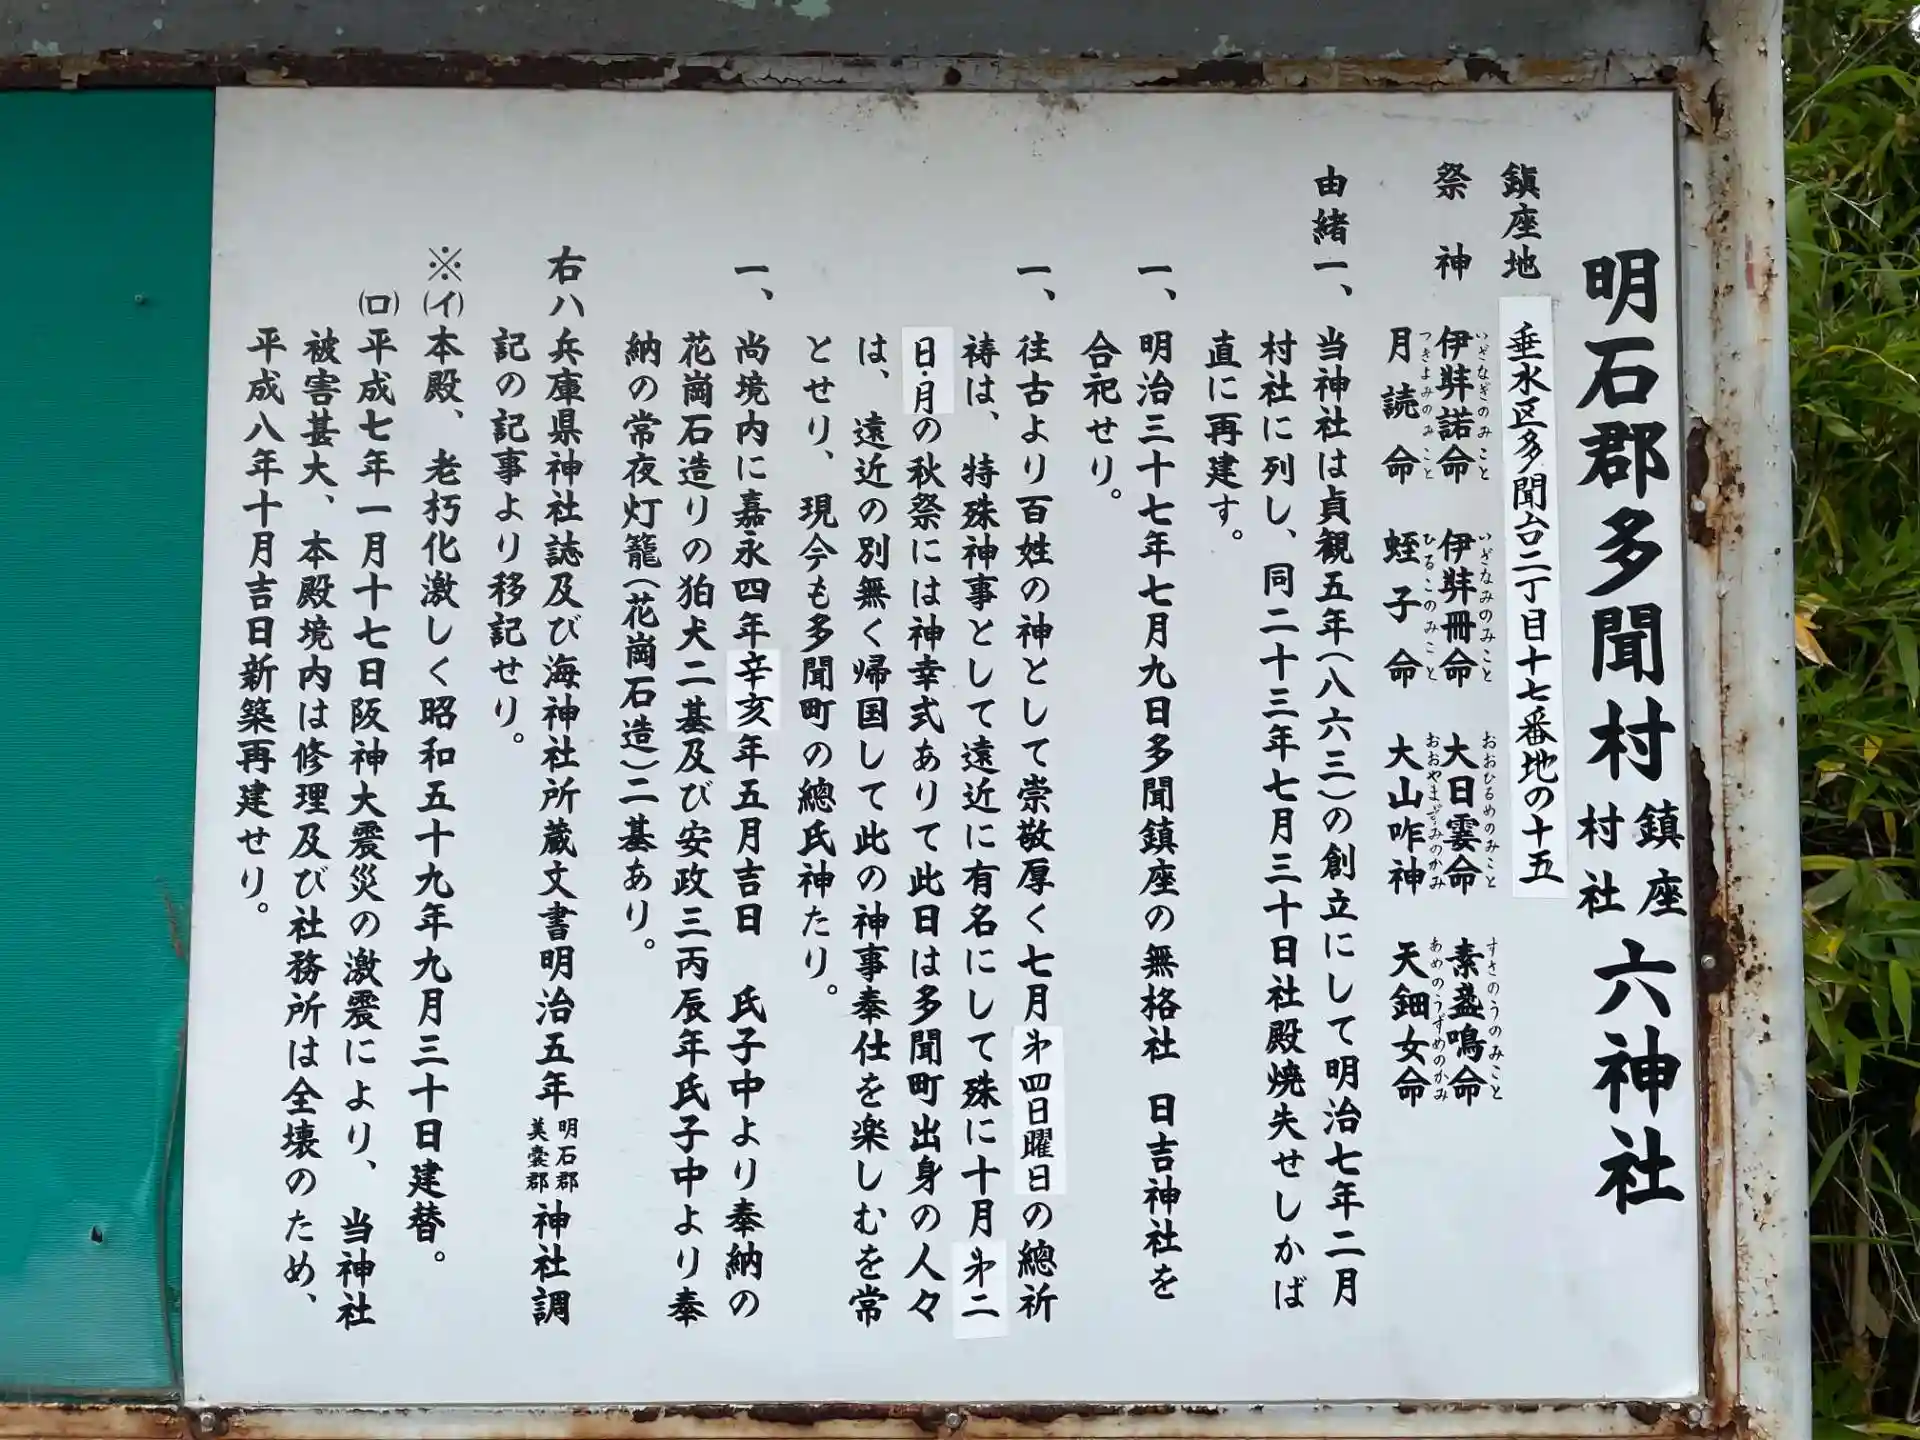 明石郡多聞村鎮座村社六神社
鎮座地 垂水区多聞台二丁目十七番地の十五
祭神 伊弉諾命 伊弉冊命 大日孁命 素盞鳴命
いざなぎのみこと いざなみのみこと おおひるめのみこと すさのうのみこと
月読命 蛭子命 大山咋神 天鈿女命
つきよみのみこと ひるこのみこと おおやまずみのかみ あめのうずめのかみ
由緒一、当神社は貞観五年(八六三)の創立にして明治七年二月
村社に列し、同二十三年七月三十日社殿焼失せしかば
直に再建す。
一、明治三十七年七月九日多聞鎮座の無格社 日吉神社を
合祀せり。
一、往古より百姓の神として崇敬厚く七月㐧四日曜日の總祈
祷は、特殊神事として遠近に有名にして殊に十月㐧二
日・月の秋祭には神幸式ありて此日は多聞町出身の人々
は、遠近の別無く帰国して此の神事奉仕を楽しむを常
とせり、現今も多聞町の總氏神たり。
一、尚境内に嘉永四年辛亥年五月吉日 氏子中より奉納の
花崗石造りの狛犬二基及び安政三丙辰年氏子中より奉
納の常夜灯籠(花崗石造)二基あり。
右ハ兵庫県神社誌及び海神社所蔵文書明治五年明石郡美嚢郡神社調
記の記事より移記せり。
※(イ)本殿、老朽化激しく昭和五十九年九月三十日建替。
(ロ)平成七年一月十七日阪神大震災の激震により、当神社
被害甚大、本殿境内は修理及び社務所は全壊のため、
平成八年十月吉日新築再建せり。